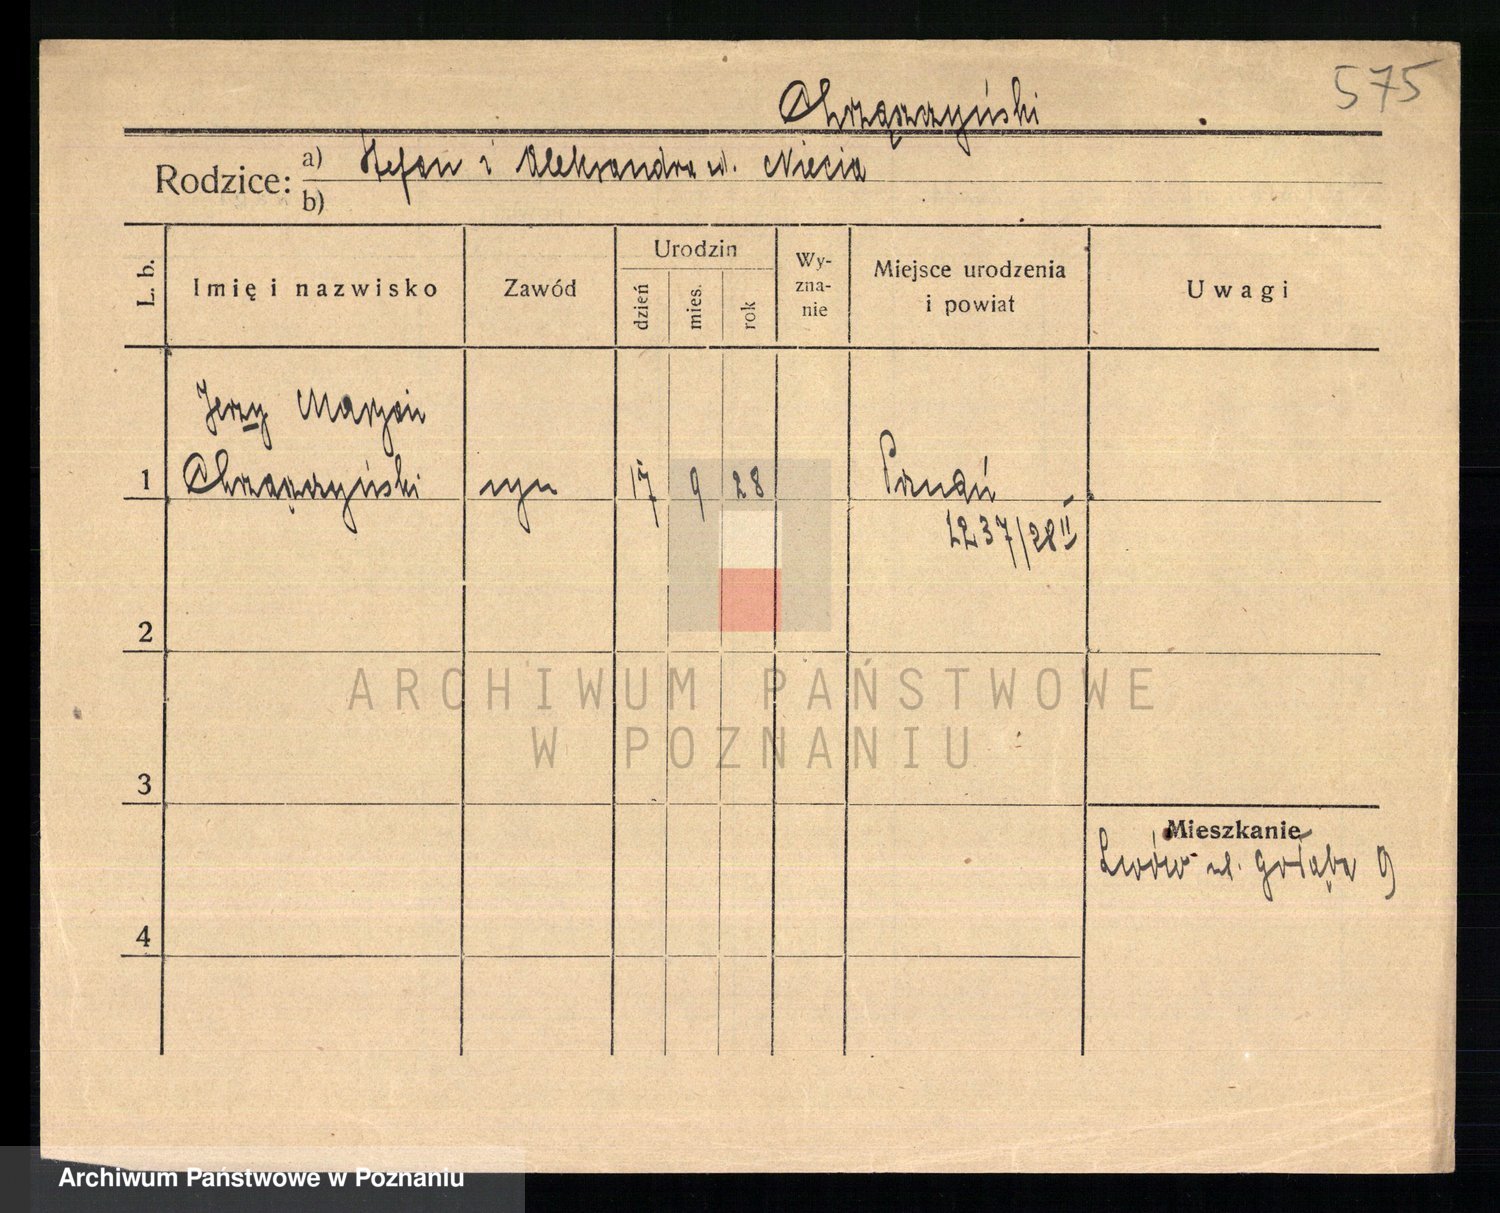 575
Chrząszczyński
Rodzice: a) Stefan i Aleksandra
b)
L. b.
Imię i nazwisko
Zawód
Urodzin
dzień
mies.
rok
Wy-
zna-
nie
Miejsce urodzenia
i powiat
Uwagi
Jerzy Marjan
1 Chrząszczyński syn 17 9 28 Poznań
1237/28 II
2
3
4
Mieszkanie
Lwów ul. Gołąba 9
ARCHIWUM PAŃSTWOWE
W POZNANIU
Archiwum Państwowe w Poznaniu